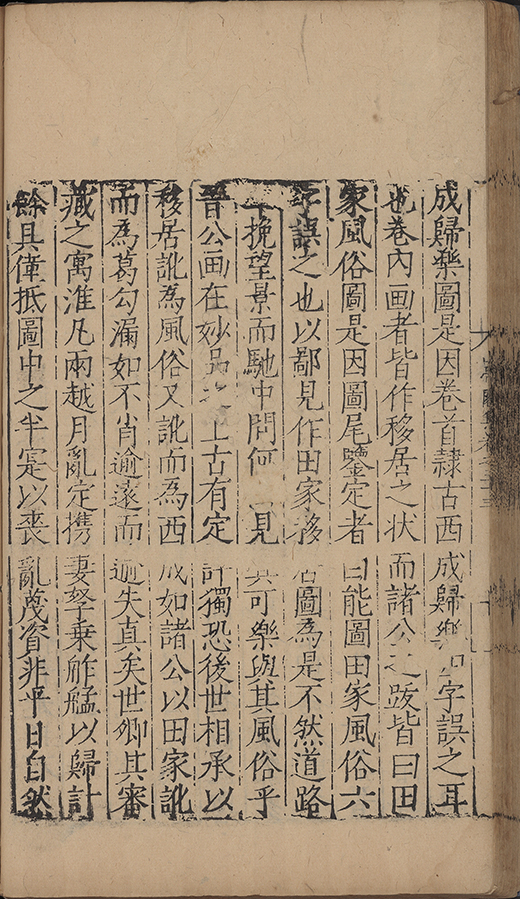 成歸樂圖是因卷首隷古西成歸樂字誤之耳
也卷內画者皆作移居之状而諸公之跋皆曰田
家風俗圖是因圖尾鑒定者曰能圖田家風俗六
字誤之也以鄙見作田家移居圖為是不然道路
挽望景而馳中問何見其可樂與其風俗乎
晉公画在妙品之上古有定評獨恐後世相承以
移居訛為風俗又訛而為西成如諸公以田家訛
而為葛勾漏如不肖逾遠而逾失真矣世卿其審
藏之寓淮凡兩越月亂定携妻孥乗舴艋以歸計
餘具僅抵圖中之半寔以喪亂蔑資非乎日自然